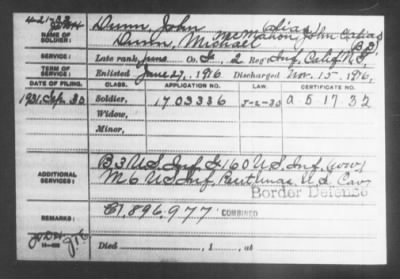 4-21-33 Dunn, John (alias)
NAME OF SOLDIER: McMahon, John (alias)
Dunn, Michael
SERVICE: Late rank, Co. G, 2 Reg't Inf., Calif. N.G.
TERM OF SERVICE: Enlisted June 27, 1916, Discharged Nov. 15-1916,
DATE OF FILING. CLASS. APPLICATION NO. LAW. CERTIFICATE NO.
1931 Sep. 30 Soldier, 1703336 5-2-30 a 51732
Widow,
Minor,
ADDITIONAL SERVICES: B 3 U.S. Inf. G 160 U.S. Inf. (ww)
M 6 U.S. Inf. U.S. Cav
Border Defense
REMARKS: C1,896,977 COMBINED
Died , 1 , at